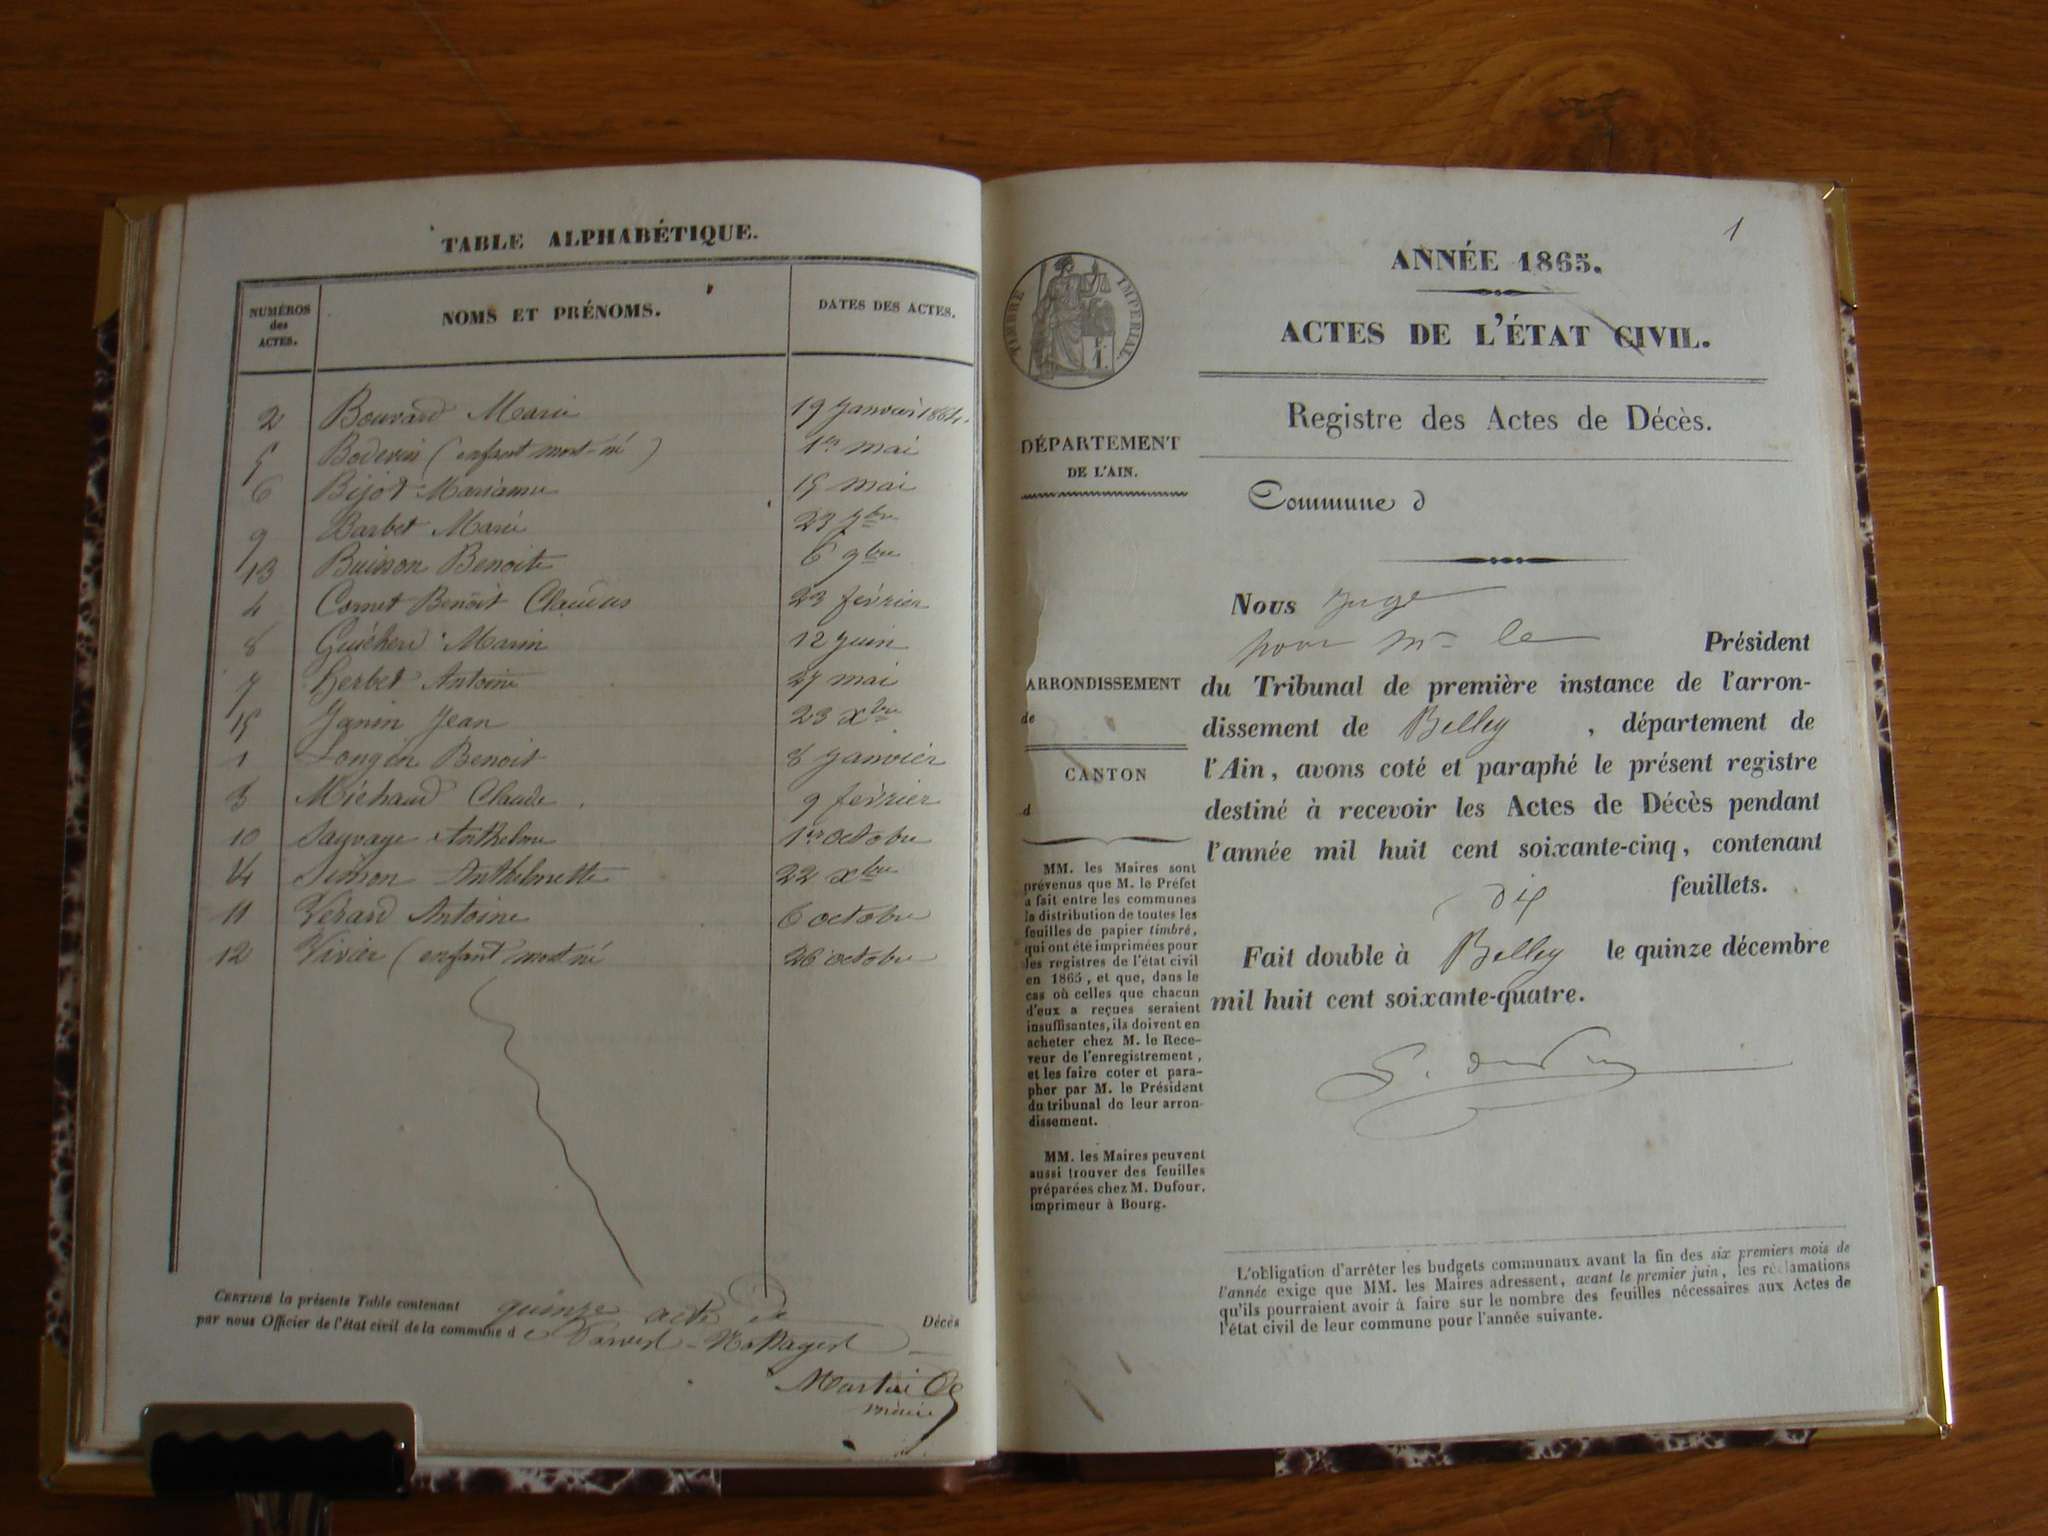 TABLE ALPHABÉTIQUE.
NUMÉROS des ACTES. NOMS ET PRÉNOMS. DATES DES ACTES.
2 Bouvard Marie 19 Janvier 1864.
5 Boderin (enfant mort-né) 1er mai
6 Bijot Marianne 15 mai
9 Barbet Marie 23 7bre
13 Buisson Benoite 6 9bre
4 Cornet Benoit Claudius 23 février
8 Marin 12 Juin
7 Herbet Antoine 27 mai
15 Janin Jean 23 xbre
1 Longin Benoit 8 Janvier
3 Michaud Claude 9 février
10 Sauvage Anthelme 1er octobre
14 Simon Anthelmette 22 xbre
11 Vérard Antoine 6 octobre
12 Vivier (enfant mort né 26 octobre
CERTIFIÉ la présente Table contenant quinze actes de Décès
par nous Officier de l'état civil de la commune d e
Martin
maire
1
TIMBRE IMPERIAL
ANNÉE 1865.
ACTES DE L'ÉTAT CIVIL.
Registre des Actes de Décès.
DÉPARTEMENT
DE L'AIN.
ARRONDISSEMENT
de
CANTON
d
MM. les Maires sont
prévenus que M. le Préfet
a fait entre les communes
la distribution de toutes les
feuilles de papier timbré,
qui ont été imprimées pour
les registres de l'état civil
en 1865, et que, dans le
cas où celles que chacun
d'eux a reçues seraient
insuffisantes, ils doivent en
acheter chez M. le Rece-
veur de l'enregistrement,
et les faire coter et para-
pher par M. le Président
du tribunal de leur arron-
dissement.
MM. les Maires peuvent
aussi trouver des feuilles
préparées chez M. Dufour,
imprimeur à Bourg.
Commune d
Nous Juge
pour Mr le Président
du Tribunal de première instance de l'arron-
dissement de Belley , département de
l'Ain, avons coté et paraphé le présent registre
destiné à recevoir les Actes de Décès pendant
l'année mil huit cent soixante-cinq, contenant
dix feuillets.
Fait double à Belley le quinze décembre
mil huit cent soixante-quatre.
L'obligation d'arrêter les budgets communaux avant la fin des six premiers mois de
l'année exige que MM. les Maires adressent, avant le premier juin, les réclamations
qu'ils pourraient avoir à faire sur le nombre des feuilles nécessaires aux Actes de
l'état civil de leur commune pour l'année suivante.